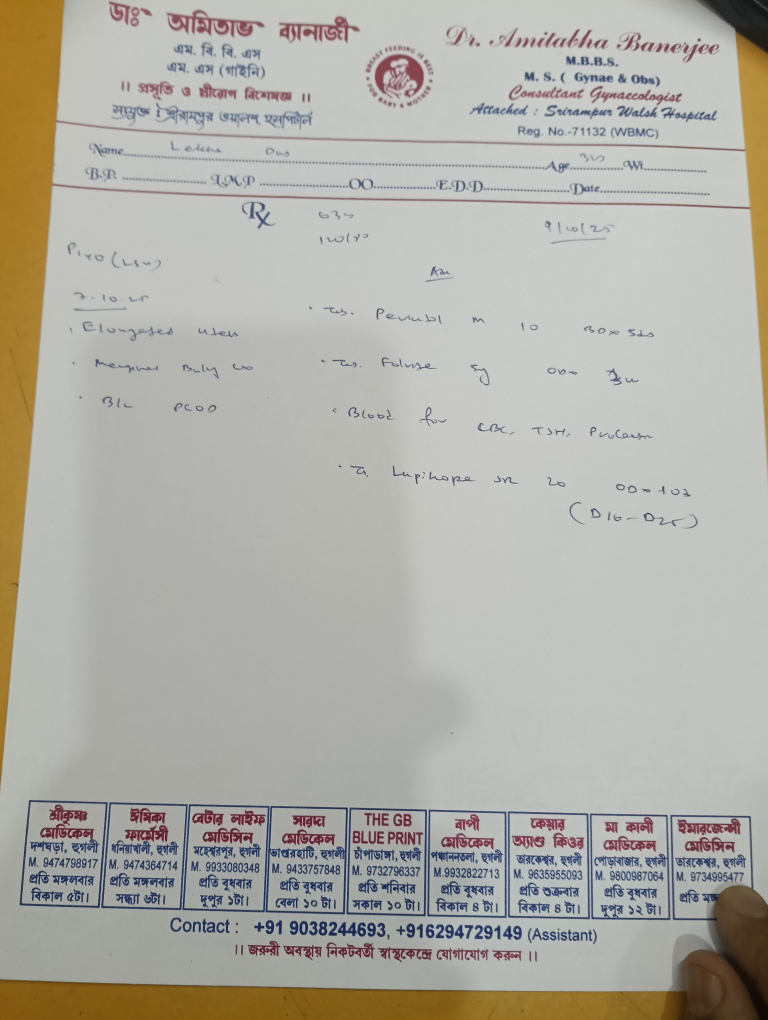 ডাঃ অমিতাভ ব্যানার্জী
এম. বি. বি. এস
এম. এস (গাইনি)
।। প্রসূতি ও স্ত্রীরোগ বিশেষজ্ঞ ।।
সংযুক্ত : শ্রীরামপুর ওয়ালশ হসপিটাল
BREAST FEEDING IS BEST
FOR BABY & MOTHER
Dr. Amitabha Banerjee
M.B.B.S.
M. S. ( Gynae & Obs)
Consultant Gynaecologist
Attached : Srirampur Walsh Hospital
Reg. No.-71132 (WBMC)
Name Age Wt
B.P. L.M.P OO E.D.D Date
Rx
9/10/25
P1+0
7.10.25
Elongated uterus
B/L PCOD
Adv
Tab. M 10 BD x 5d
Tab. 5g OD x
Blood for CBC, TSH, Prolactin
T. SR 20 OD x 10d
(D16 - D25)
শ্রীকৃষ্ণ মেডিকেল
দশঘড়া, হুগলী
M. 9474798917
প্রতি মঙ্গলবার
বিকাল ৫টা।
ঈষিকা ফার্মেসী
ধনিয়াখালী, হুগলী
M. 9474364714
প্রতি মঙ্গলবার
সন্ধ্যা ৬টা।
বেটার লাইফ মেডিসিন
মহেশ্বরপুর, হুগলী
M. 9933080348
প্রতি বুধবার
দুপুর ১টা।
সারদা মেডিকেল
ভাণ্ডারহাটি, হুগলী
M. 9433757848
প্রতি বুধবার
বেলা ১০ টা।
THE GB BLUE PRINT
চাঁপাডাঙ্গা, হুগলী
M. 9732796337
প্রতি শনিবার
সকাল ১০ টা।
বাপী মেডিকেল
পঞ্চাননতলা, হুগলী
M.9932822713
প্রতি বুধবার
বিকাল ৪ টা।
কেয়ার অ্যাণ্ড কিওর
তারকেশ্বর, হুগলী
M. 9635955093
প্রতি শুক্রবার
বিকাল ৪ টা।
মা কালী মেডিসিন
পোড়াবাজার, হুগলী
M. 9800987064
প্রতি বুধবার
দুপুর ১২ টা।
ইমারজেন্সী মেডিসিন
তারকেশ্বর, হুগলী
M. 9734995477
প্রতি
Contact : +91 9038244693, +916294729149 (Assistant)
।। জরুরী অবস্থায় নিকটবর্তী স্বাস্থ্যকেন্দ্রে যোগাযোগ করুন ।।